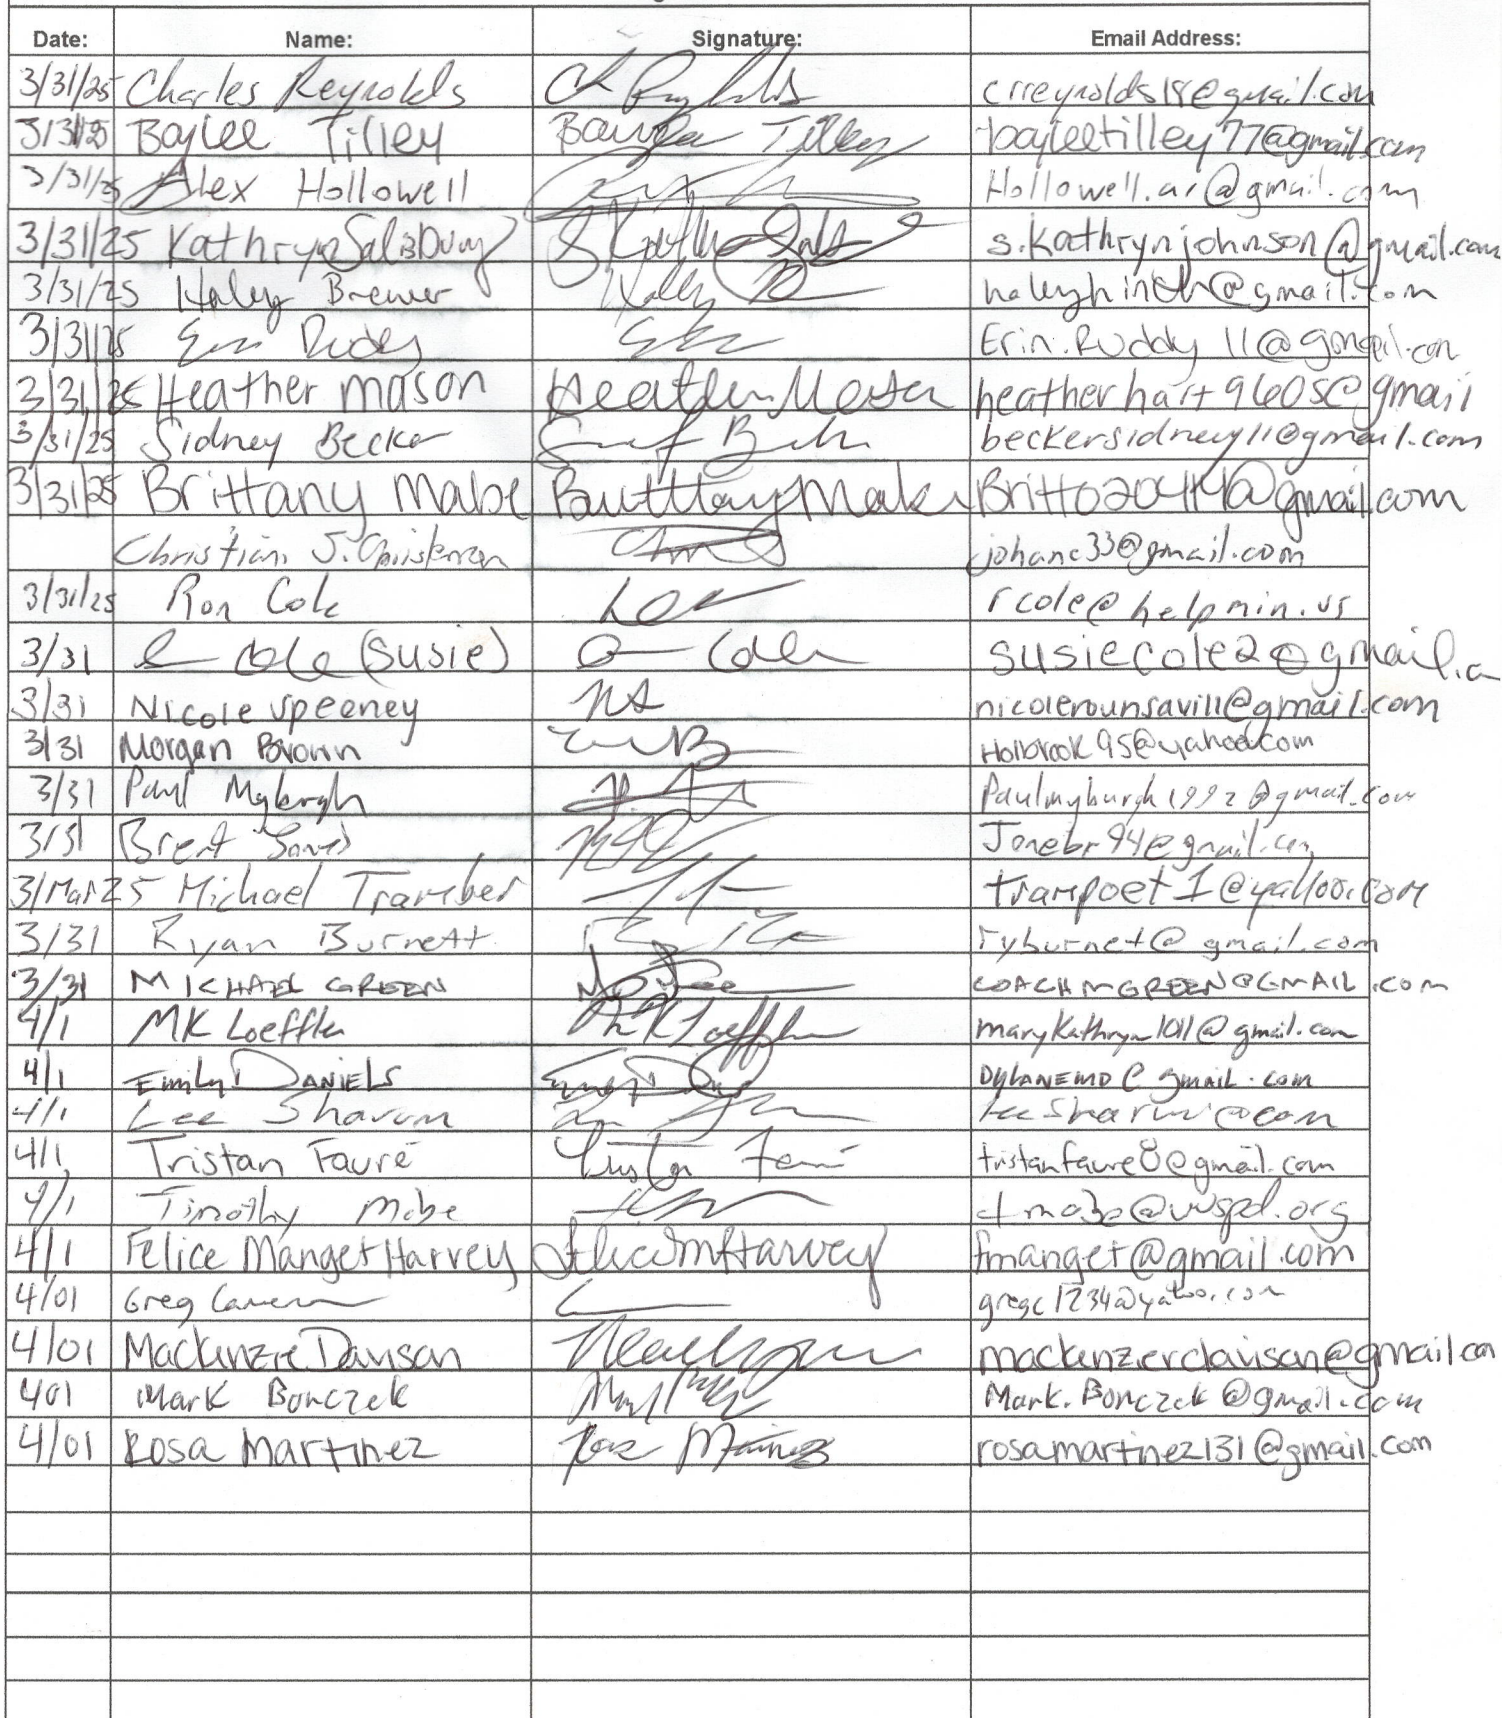 Date: Name: Signature: Email Address:
3/31/25 Charles Reynolds crreynolds18@gmail.com
3/31/25 Baylee Tilley Baylee Tilley bayleetilley77@gmail.com
3/31/25 Alex Hollowell Hollowell.ar@gmail.com
3/31/25 Kathryn Salsbury s.kathrynjohnson@gmail.com
3/31/25 Haley Brewer haleyhinch@gmail.com
3/31/25 Erin Ruddy Erin.Ruddy11@gmail.com
3/31/25 Heather Mason Heather Mason @gmail
3/31/25 Sidney Becker beckersidney11@gmail.com
3/31/25 Brittany Mabe Brittany Mabe @gmail.com
Christian J. Christensen johanc33@gmail.com
3/31/25 Ron Cole rcole@helpmin.us
3/31 Cole (Susie) Cole susiecole2@gmail.c
3/31 Nicole Speeney NS nicolerounsavill@gmail.com
3/31 Morgan Brown Holbrook95@yahoo.com
3/31 Paul Myburgh Paulmyburgh1992@gmail.com
3/31 Brent Jones Jonebr94@gmail.com
31Mar25 Michael Tramber trampoet1@yahoo.com
3/31 Ryan Burnett ryburnet@gmail.com
3/31 MICHAEL GREEN COACHMGREEN@GMAIL.com
4/1 MK Loeffler MK Loeffler marykathryn1011@gmail.com
4/1 Emily DANIELS DylanEMD@gmail.com
4/1 Lee
4/1 Tristan Fauré tristanfaure8@gmail.com
4/1 Timothy Mabe
4/1 Felice Manget Harvey Felice M Harvey fmanget@gmail.com
4/01 Greg Cameron gregc1234@yahoo.com
4/01 Mackenzie Davison mackenzierdavison@gmail.com
401 Mark Bonczek Mark.Bonczek@gmail.com
4/01 Rosa Martinez rosamartinez131@gmail.com